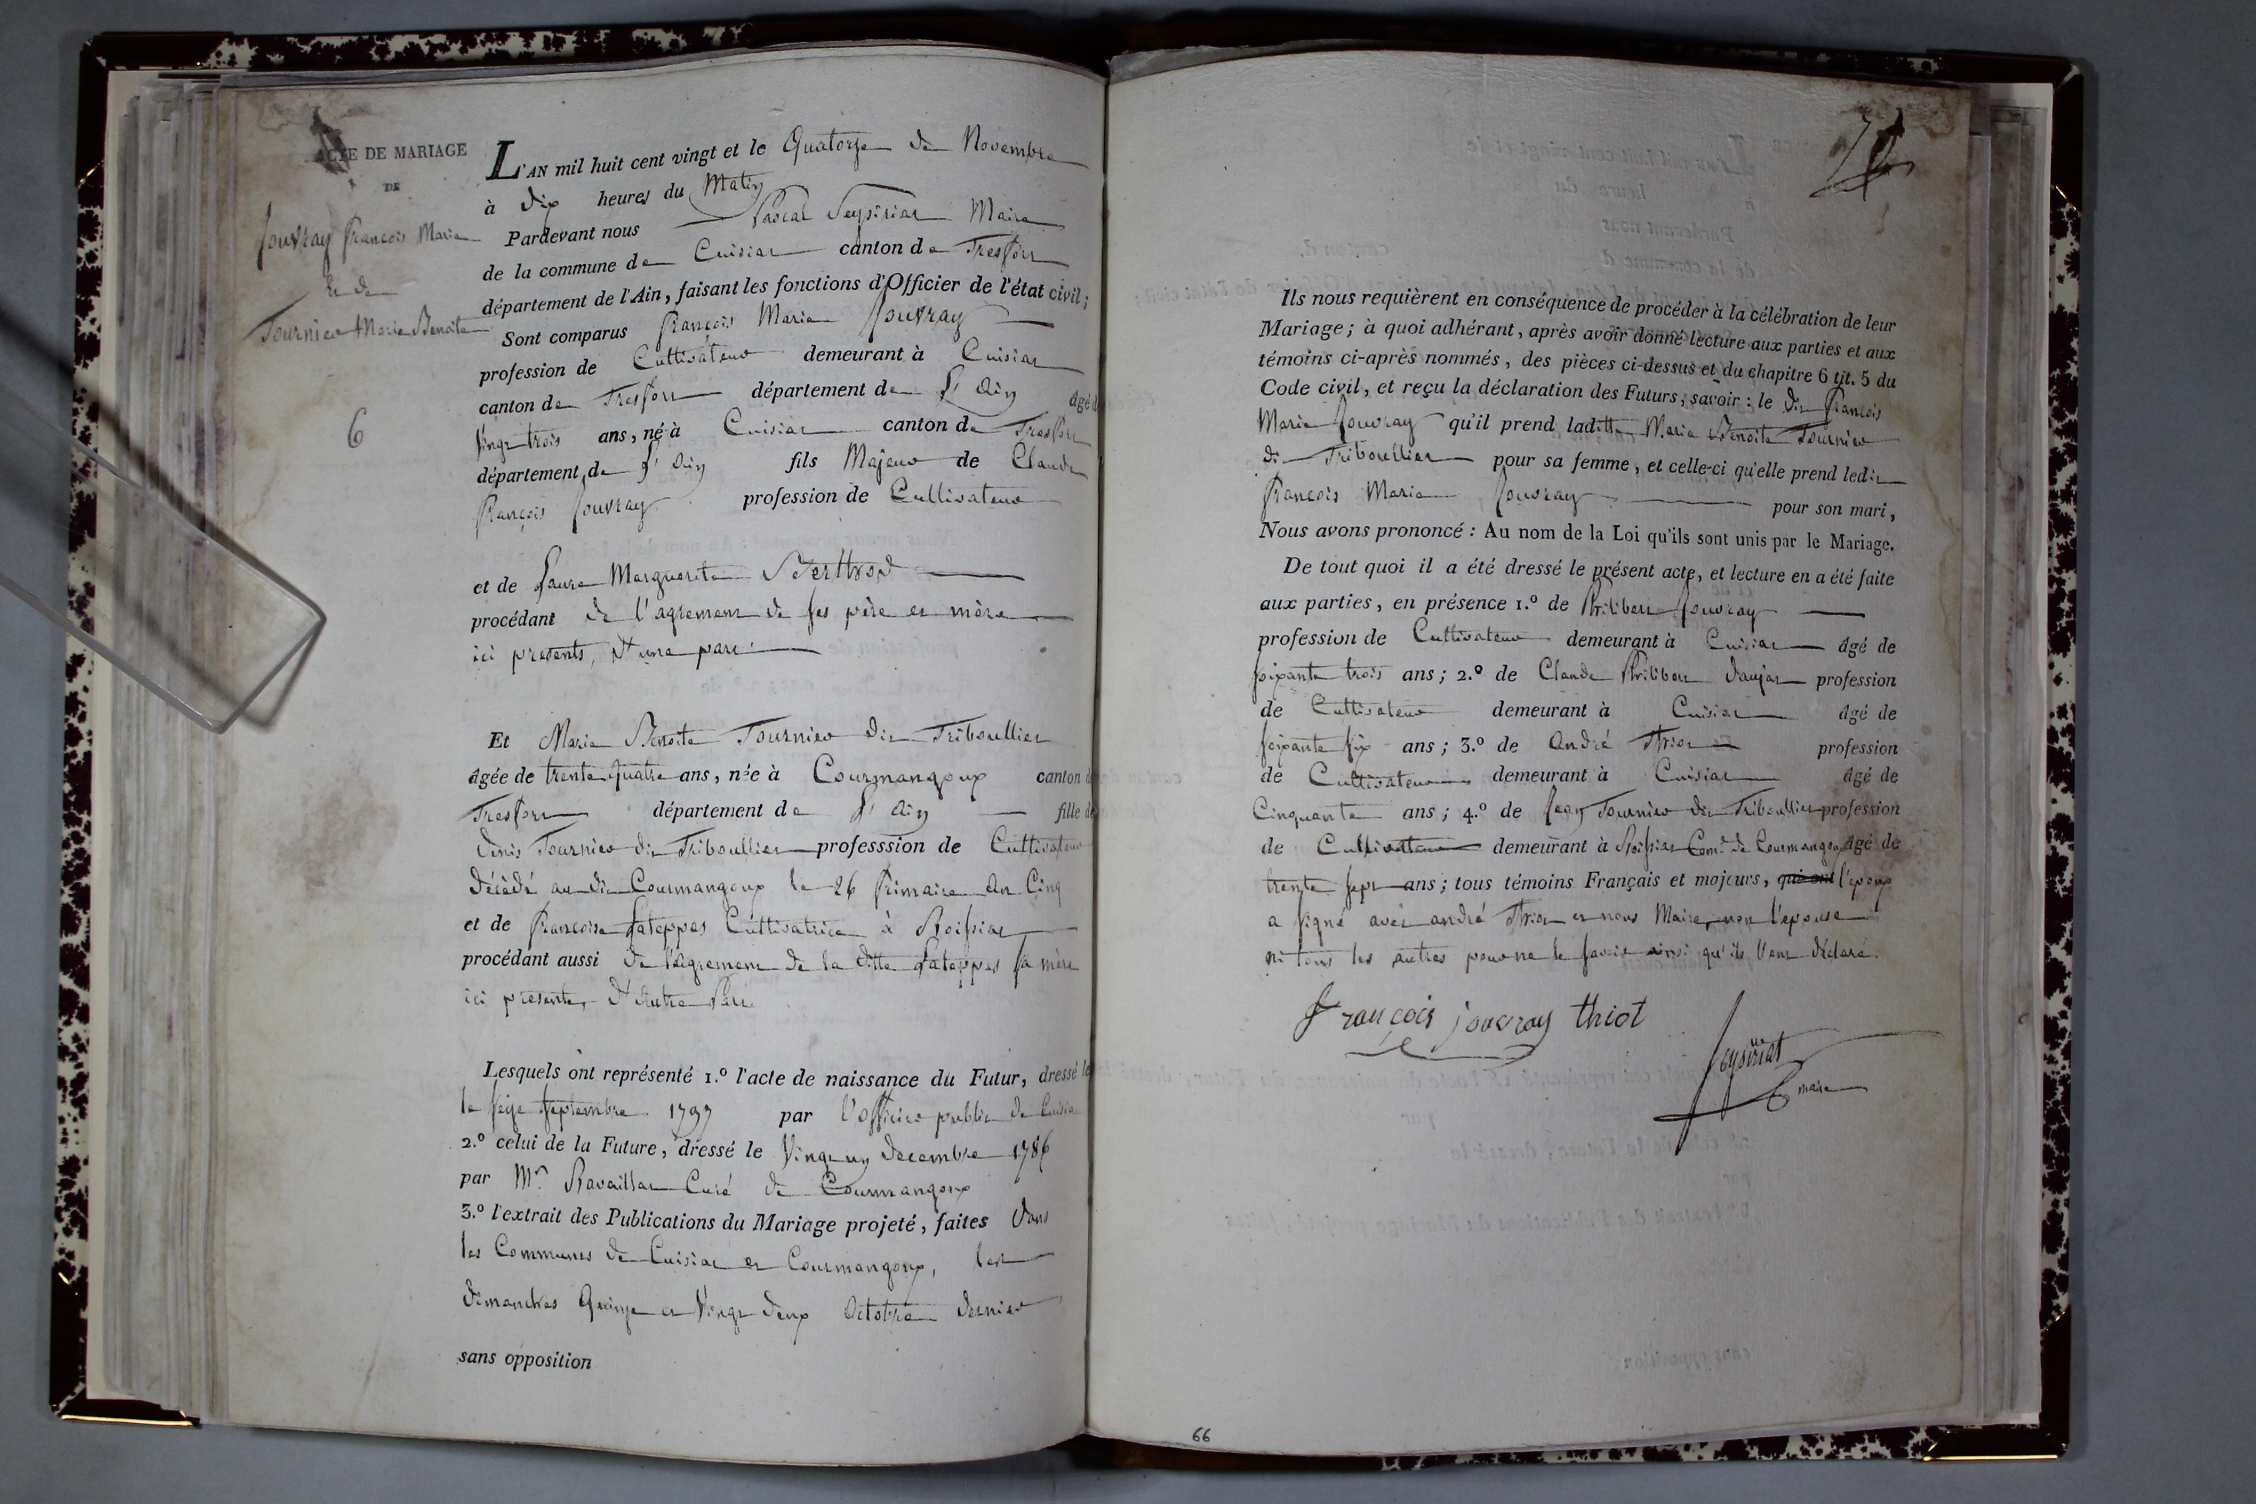 ACTE DE MARIAGE
DE
Jouvray François Marie
et de
Tournier Marie Benoite
6
L'AN mil huit cent vingt et le Quatorze de Novembre
à dix heures du Matin
Pardevant nous Pascal Seysiriat Maire
de la commune de Cuisiat canton de Treffort
département de l'Ain, faisant les fonctions d'Officier de l'état civil;
Sont comparus François Marie Jouvray
profession de Cultivateur demeurant à Cuisiat
canton de Treffort département de l'Ain âgé d
Vingt trois ans, né à Cuisiat canton de Treffort
département de l'Ain fils Majeur de Claude
François Jouvray profession de Cultivateur
et de Laure Marguerite
procédant de l'agrement de ses père et mère
ici presents, d'une part
Et Marie Benoite Tournier dit Triboullier
âgée de trente quatre ans, née à Courmangoux canton d
Treffort département de l'Ain fille de
Denis Tournier dit Triboullier professsion de Cultivateur
décédé au dit Courmangoux le 26 frimaire An Cinq
et de Francoise Cultivatrice à Roissiat
procédant aussi de l'agrement de la ditte sa mère
ici presente, d'Autre Part
Lesquels ont représenté 1.º l'acte de naissance du Futur, dressé le
le seize Septembre 1797 par l'officier public de Cuisiat
2.º celui de la Future, dressé le Vingt un decembre 1786
par Mr. Curé de Courmangoux
3.º l'extrait des Publications du Mariage projeté, faites dans
les Communes de Cuisiat et Courmangoux, les
dimanches Quinze et Vingt deux Octobre dernier
sans opposition
Ils nous requièrent en conséquence de procéder à la célébration de leur
Mariage; à quoi adhérant, après avoir donné lecture aux parties et aux
témoins ci-après nommés, des pièces ci-dessus et du chapitre 6 tit. 5 du
Code civil, et reçu la déclaration des Futurs, savoir: le dit François
Marie Jouvray qu'il prend laditte Marie Benoite Tournier
dit Triboullier pour sa femme, et celle-ci qu'elle prend ledit
François Marie Jouvray pour son mari,
Nous avons prononcé: Au nom de la Loi qu'ils sont unis par le Mariage.
De tout quoi il a été dressé le présent acte, et lecture en a été faite
aux parties, en présence 1.º de Philibert Jouvray
profession de Cultivateur demeurant à Cuisiat âgé de
soixante trois ans; 2.º de Claude Philibert profession
de Cultivateur demeurant à Cuisiat âgé de
soixante six ans; 3.º de André Thiot profession
de Cultivateur demeurant à Cuisiat âgé de
Cinquante ans; 4.º de Jean Tournier dit Triboullier profession
de Cultivateur demeurant à Roissiat Comne de Courmangoux âgé de
trente sept ans; tous témoins Français et majeurs, qui ont l'epoux
a signé avec andré Thiot et nous Maire, non l'epouse
ni tous les autres pour ne le savoir ainsi qu'ils l'ont déclaré.
françois jouvray thiot
Seysiriat
maire
66